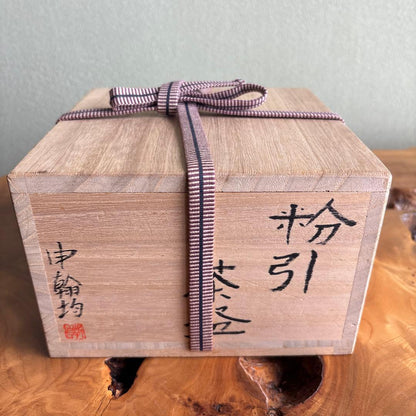 粉引
茶盌
申翰均